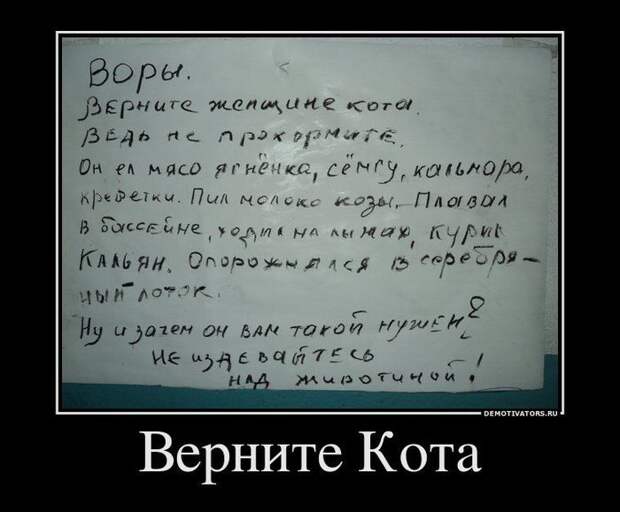 Воры.
Верните женщине кота.
Ведь не прокормите.
Он ел мясо ягнёнка, сёмгу, кальмара,
креветки. Пил молоко козы. Плавал
в бассейне, ходил на лыжах, курил
Кальян. Опорожнялся в серебря-
ный лоток.
Ну и зачем он вам такой нужен?
Не издевайтесь
над животиной!
DEMOTIVATORS.RU
Верните Кота